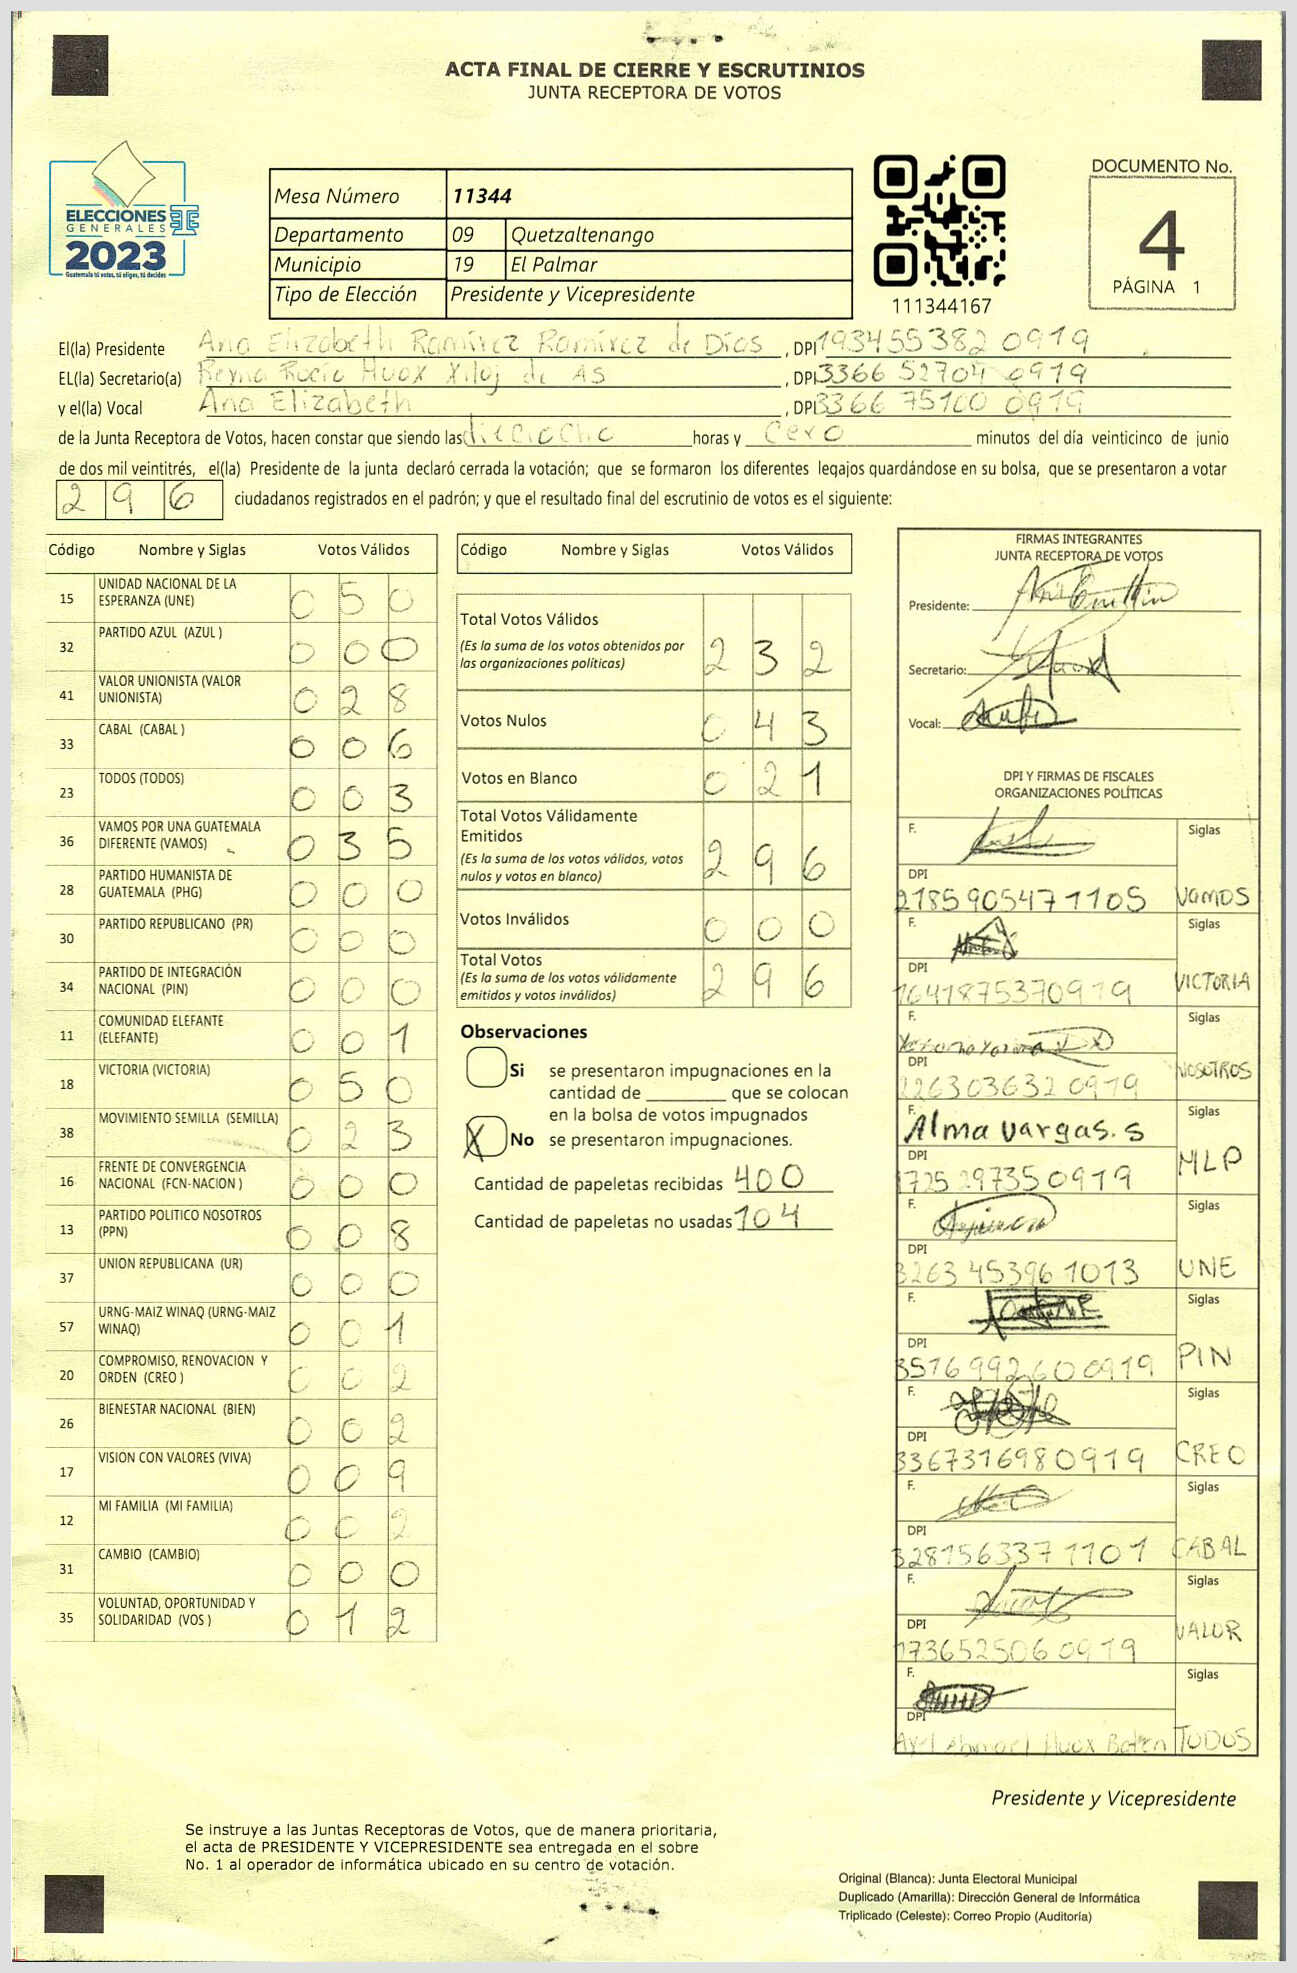 ACTA FINAL DE CIERRE Y ESCRUTINIOS
JUNTA RECEPTORA DE VOTOS
ELECCIONES
GENERALES
2023
Guatemala tú votas, tú eliges, tú decides
Mesa Número 11344
Departamento 09 Quetzaltenango
Municipio 19 El Palmar
Tipo de Elección Presidente y Vicepresidente
111344167
DOCUMENTO No.
4
PÁGINA 1
El(la) Presidente Ana Elizabeth Ramírez Ramírez de Días, DPI 193455382 0919
EL(la) Secretario(a) Reyna Rocío Huox Xiloj de As, DPI 3366 52704 0919
y el(la) Vocal Ana Elizabeth, DPI 3366 75100 0919
de la Junta Receptora de Votos, hacen constar que siendo las dieciocho horas y cero minutos del día veinticinco de junio
de dos mil veintitrés, el(la) Presidente de la junta declaró cerrada la votación; que se formaron los diferentes legajos guardándose en su bolsa, que se presentaron a votar
296 ciudadanos registrados en el padrón; y que el resultado final del escrutinio de votos es el siguiente:
Código Nombre y Siglas Votos Válidos
15 UNIDAD NACIONAL DE LA ESPERANZA (UNE) 0 5 0
32 PARTIDO AZUL (AZUL ) 0 0 0
41 VALOR UNIONISTA (VALOR UNIONISTA) 0 2 8
33 CABAL (CABAL ) 0 0 6
23 TODOS (TODOS) 0 0 3
36 VAMOS POR UNA GUATEMALA DIFERENTE (VAMOS) 0 3 5
28 PARTIDO HUMANISTA DE GUATEMALA (PHG) 0 0 0
30 PARTIDO REPUBLICANO (PR) 0 0 0
34 PARTIDO DE INTEGRACIÓN NACIONAL (PIN) 0 0 0
11 COMUNIDAD ELEFANTE (ELEFANTE) 0 0 1
18 VICTORIA (VICTORIA) 0 5 0
38 MOVIMIENTO SEMILLA (SEMILLA) 0 2 3
16 FRENTE DE CONVERGENCIA NACIONAL (FCN-NACION ) 0 0 0
13 PARTIDO POLITICO NOSOTROS (PPN) 0 0 8
37 UNION REPUBLICANA (UR) 0 0 0
57 URNG-MAIZ WINAQ (URNG-MAIZ WINAQ) 0 0 1
20 COMPROMISO, RENOVACION Y ORDEN (CREO ) 0 0 2
26 BIENESTAR NACIONAL (BIEN) 0 0 2
17 VISION CON VALORES (VIVA) 0 0 9
12 MI FAMILIA (MI FAMILIA) 0 0 2
31 CAMBIO (CAMBIO) 0 0 0
35 VOLUNTAD, OPORTUNIDAD Y SOLIDARIDAD (VOS ) 0 1 2
Código Nombre y Siglas Votos Válidos
Total Votos Válidos
(Es la suma de los votos obtenidos por las organizaciones políticas) 2 3 2
Votos Nulos 0 4 3
Votos en Blanco 0 2 1
Total Votos Válidamente Emitidos
(Es la suma de los votos válidos, votos nulos y votos en blanco) 2 9 6
Votos Inválidos 0 0 0
Total Votos
(Es la suma de los votos válidamente emitidos y votos inválidos) 2 9 6
Observaciones
Si se presentaron impugnaciones en la
cantidad de ________ que se colocan
en la bolsa de votos impugnados
X No se presentaron impugnaciones.
Cantidad de papeletas recibidas 400
Cantidad de papeletas no usadas 104
FIRMAS INTEGRANTES
JUNTA RECEPTORA DE VOTOS
Presidente:
Secretario:
Vocal:
DPI Y FIRMAS DE FISCALES
ORGANIZACIONES POLÍTICAS
F. Siglas
DPI
2185905471105 VAMOS
F. Siglas
DPI
1641875370919 VICTORIA
F. Siglas
DPI
226303632 0919 NOSOTROS
F. Alma Vargas. s Siglas
DPI
1725 297350919 MLP
F. Siglas
DPI
3263 453961013 UNE
F. Siglas
DPI
3516992600919 PIN
F. Siglas
DPI
3367316980919 CREO
F. Siglas
DPI
3281563371101 CABAL
F. Siglas
DPI
1736525060919 VALOR
F. Siglas
DPI
Huox TODOS
Presidente y Vicepresidente
Se instruye a las Juntas Receptoras de Votos, que de manera prioritaria,
el acta de PRESIDENTE Y VICEPRESIDENTE sea entregada en el sobre
No. 1 al operador de informática ubicado en su centro de votación.
Original (Blanca): Junta Electoral Municipal
Duplicado (Amarilla): Dirección General de Informática
Triplicado (Celeste): Correo Propio (Auditoría)